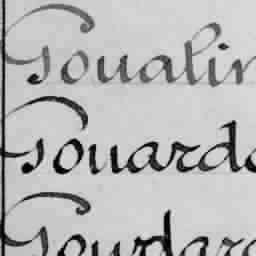 Goualin
Gouarde
Gourdare